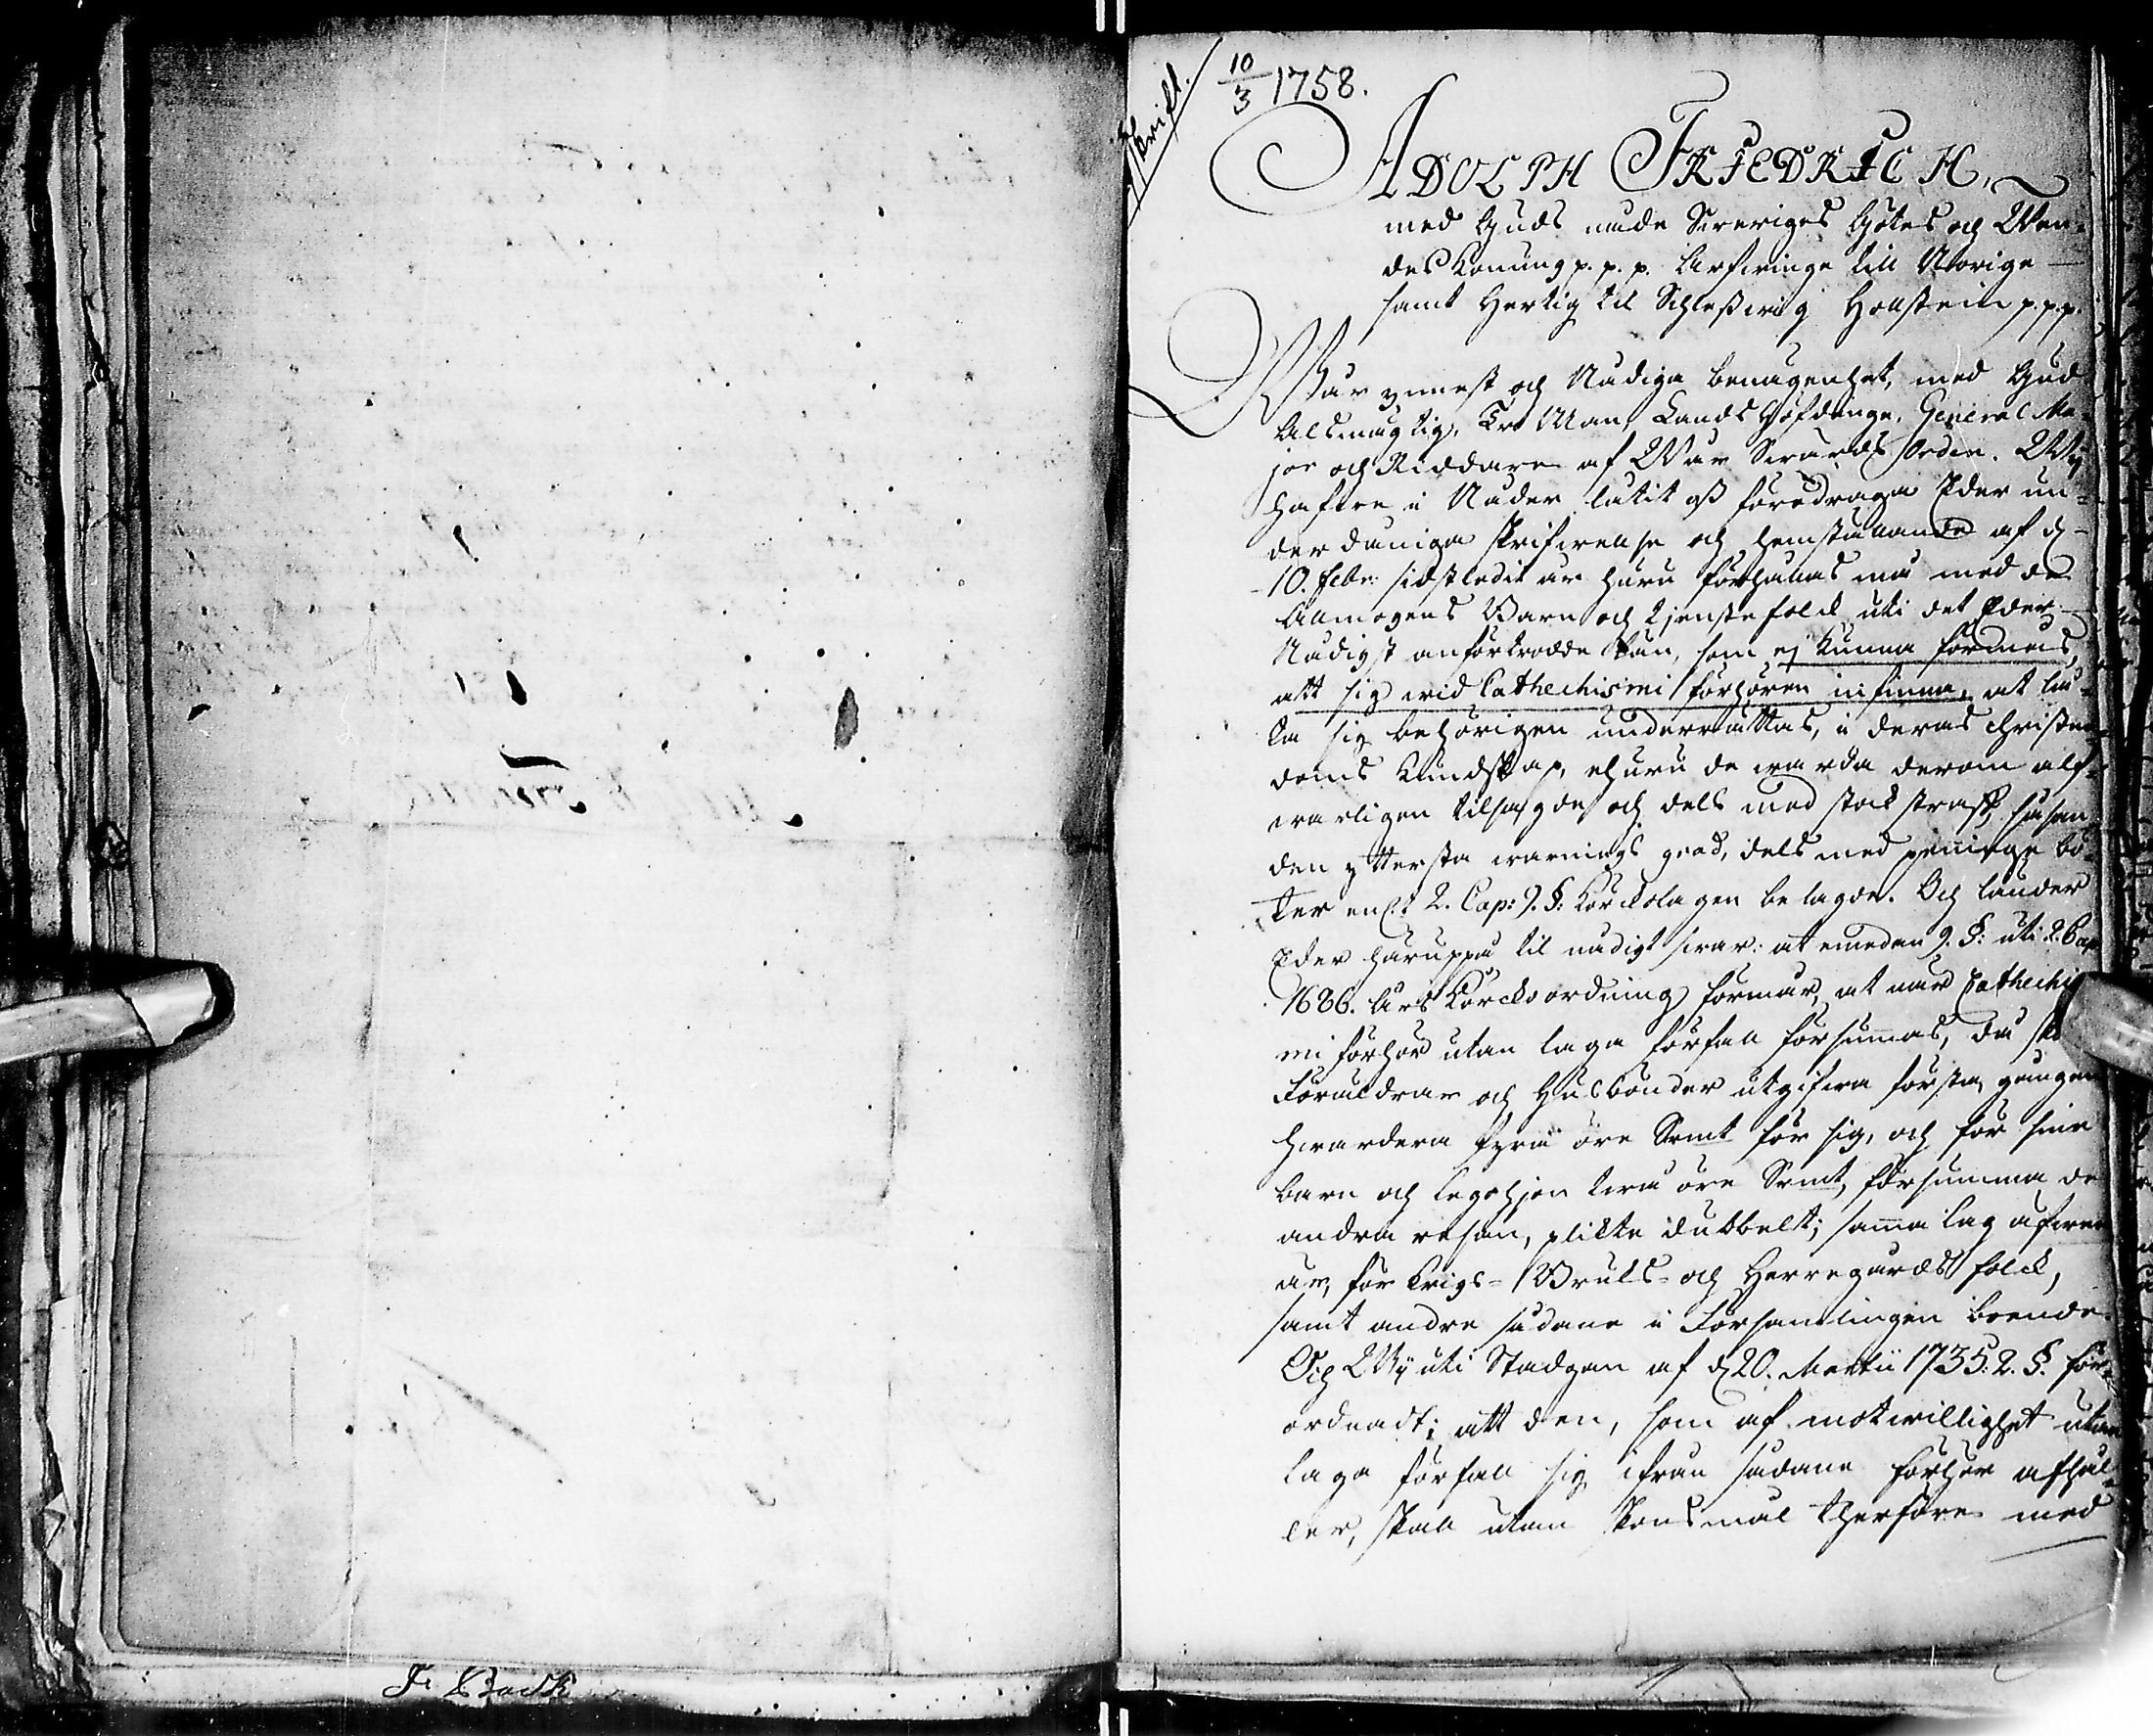 J. Back
10/3 1758.
ADOLPH FRIEDRICH,
med Guds nåde Sveriges Götes och Wen-
des Konung p. p. p. Arfvinge till Norige
samt Hertig til Schleßwig Hollstein p.p.p.
Wår ynnest och Nådiga benägenhet, med Gud
Alsmägtig, Tro Man, Lands Höfdinge, General Ma-
jor och Riddare af Wår Swärds Orden. Wÿ
hafve i Nåder låtit oß föredraga Eder un-
derdåniga skrifvelse och hemställande af d
10. Febr: sidstledit år huru förhållas må med de
Allmogens Barn och tjenstefolck uti det Eder
Nådigst anförtrodde Län, som ej kunna förmås,
att sig wid Cathechismi förhören infinna, at lå-
ta sig behörigen underrättas, i deras Christen-
doms Kundskap, ehuru de warda derom alf-
warligen tilsagde och dels med stock straff, såsom
den yttersta warnings grad, dels med peninge bö-
ter enl:t 2. Cap: 9. §: Körckolagen belagde. Och länder
Eder häruppå til nådigt swar: at emedan 9. §: uti 2. Cap
1686. års Körckoordning förmår, at när Cathechis
mi förhör utan laga förfall försummas, då
Föräldrar och Husbönder utgifva första gången
hwardera fyra öre Smt för sig, och för sine
barn och legohjon twå öre Smt, försumma de
andra resan, plickte dubbelt; samma lag äfwen
är, för Krigs- Bruks- och Herregårds folck,
samt andre sådane i Församlingen boende.
Och Wÿ uti Stadgan af d 20. Martii 1735. 2. §. för-
ordnadt; att den, som af motwillighet utan
laga förfall sig ifrån sådane förhör afhål-
ler, skall utan skonsmål therföre med